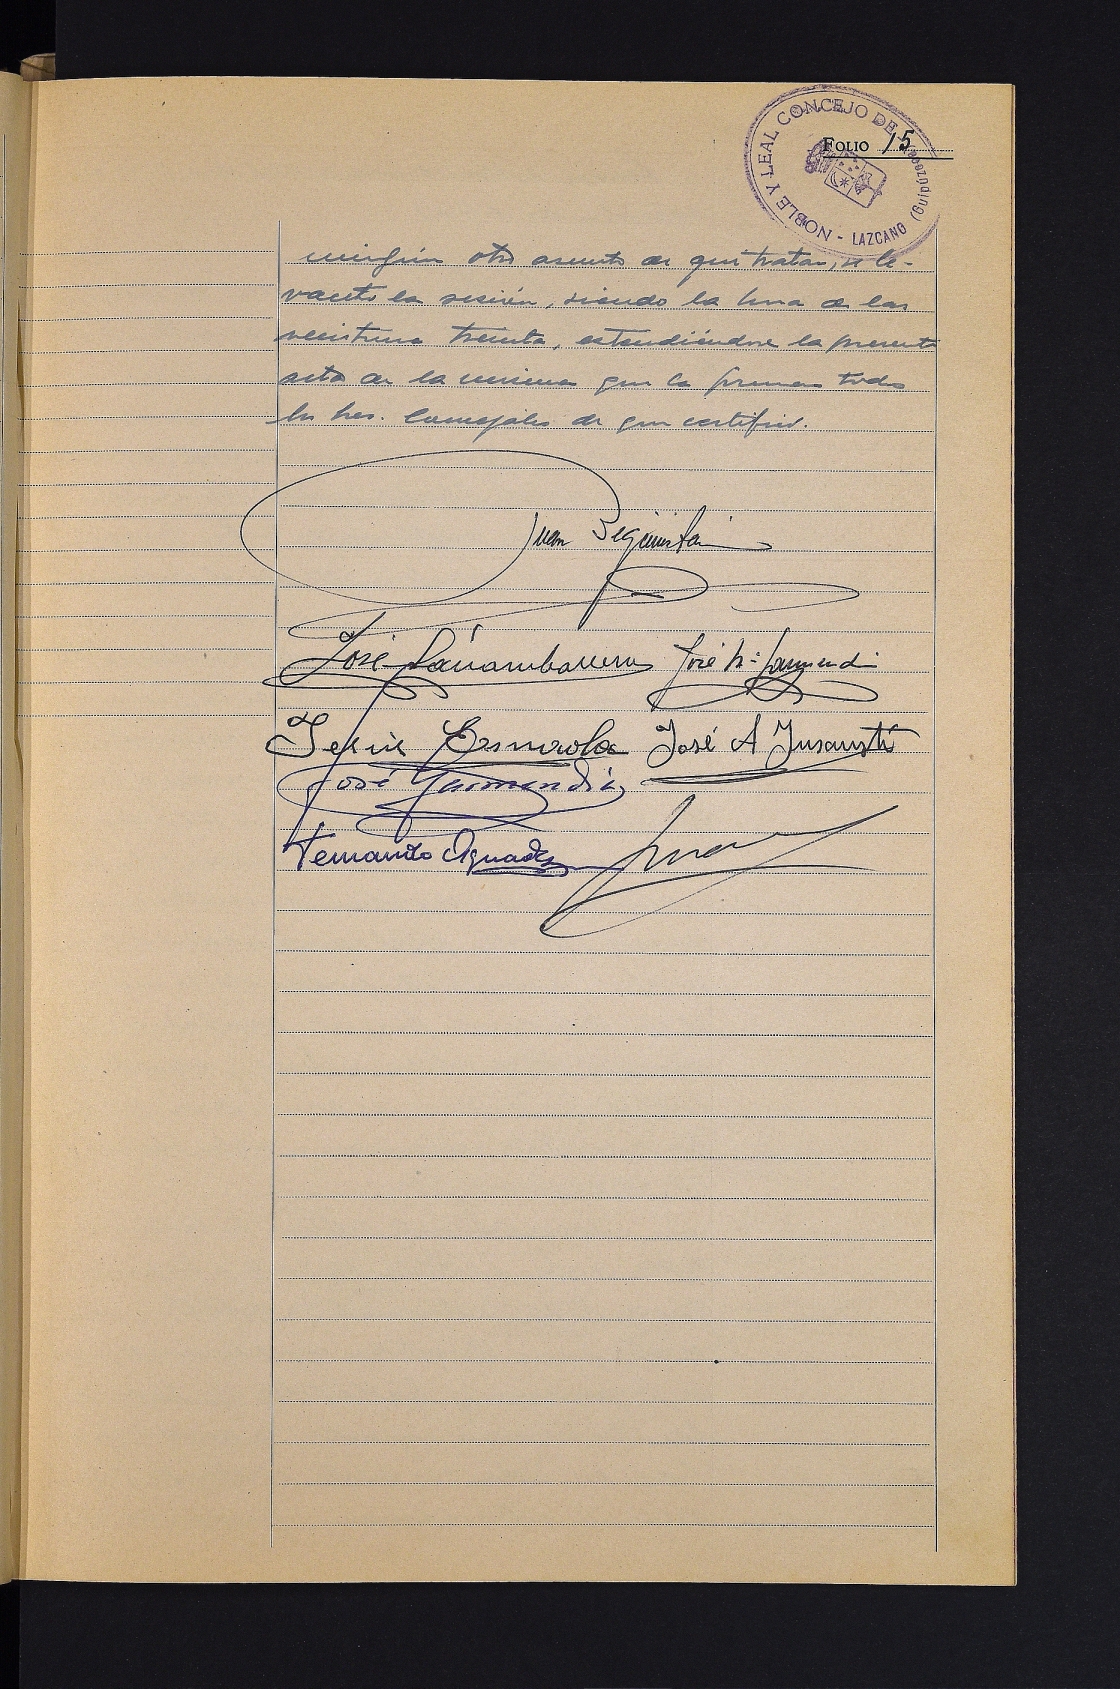 NOBLE Y LEAL CONCEJO DE LAZCANO (Guipúzcoa)
FOLIO 15
ningún otro asunto de que tratar, se le-
vantó la sesión, siendo la hora de las
veintiuna treinta, extendiéndose la presente
acta de la misma que la firman todos
los Sres. Concejales de que certifico.
Juan Beguiristain
José José Mª Garmendi
José A
José Garmendia
Fernando